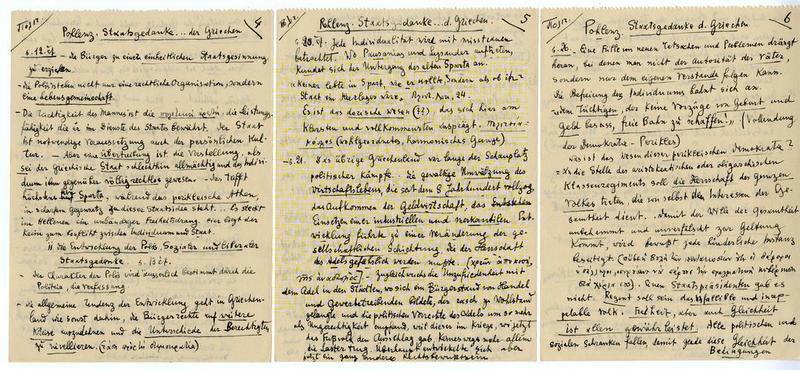 Pohlenz. Staatsgedanke ... der Griechen 4
s.12. cf - die Bürger zu einer einheitlichen Staatsgesinnung
zu erziehen.
- die Polis stehen nicht nur eine rechtliche Organisation, sondern
eine Lebensgemeinschaft.
- Die Tüchtigkeit des Mannes ist die die Leistungs-
fähigkeit die er im Dienste des Staates bewährt. Der Staat
ist notwendige Voraussetzung auch der persönlichen Kul-
tur. - Aber eine Übertreibung ist die Vorstellung, als
sei der griechische Staat schlechthin allmächtig und das Indivi-
duum ihm gegenüber völlig rechtlos gewesen. - Das trifft
höchstens auf Sparta, während das perikleische Athen
in schärfstem Gegensatz zu dieser Staatsidee steht. Es steckt
im Hellenen ein unbändiger Freiheitsdrang. Hier liegt der
Keim zum Konflikt zwischen Individuum und Staat.
II die Entwicklung der Polis. Sozialer und liberaler
Staatsgedanke s.
- der Charakter der Polis wird äusserlich bestimmt durch die
Politeia, die Verfassung
- die allgemeine Tendenz der Entwicklung geht in Griechen-
land wie sonst dahin, die Bürgerrechte auf weitere
Kreise auszudehnen und die Unterschiede der Berechtigten
zu nivellieren.
Pohlenz. Staatsgedanke ... d. Griechen. 5
s.20. cf. Jede Individualität wird mit Misstrauen
betrachtet. Wo Pausanias und Lysander auftreten,
kündet sich der Untergang des alten Sparta an.
«Keiner lebte in Sparta, wie er wollte. Sondern als ob ihr
Staat ein Heerlager wäre. 24.
Es ist das deutsche Wesen (??) das sich hier am
klarsten und vollkommensten ausprägt.
(wohlgeordnetes, harmonisches Ganze)
- s.21. Das übrige Griechenland war lange der Schauplatz
politischer Kämpfe. Die gewaltige Umwälzung des
Wirtschaftslebens, die seit dem 8 Jahrhundert vollzog,
das Aufkommen der Geldwirtschaft, das
Einsetzen einer industriellen und merkantilen Ent-
wicklung führte zu einer Veränderung der ge-
sellschaftlichen Schichtung, die der Herrschaft
des Adels gefährlich werden musste.
- Zugleich wuchs die Unzufriedenheit mit
dem Adel in den Städten, wo sich ein Bürgerstand von Handel
und Gewerbetreibenden bildete, der rasch zu Wohlstand
gelangte und die politischen Vorrechte des Adels um so mehr
als Ungerechtigkeit empfand, weil dieser im Kriege, wo jetzt
das Fußvolk den Ausschlag gab, keineswegs mehr allein
die Laster trug. Überhaupt entwickelte sich aber
jetzt ein ganz anderes Rechtsbewusstsein
Pohlenz. Staatsgedanke d. Griechen 6
s.26. - Eine Fülle von neuen Tatsachen und Problemen drängt
heran, bei denen man nicht der Autorität der Väter,
sondern nur dem eigenen Verstande folgen kann.
Die Befreiung des Individuums bahnt sich an.
- «dem Tüchtigen, der keine Vorzüge von Geburt und
Geld besass, freie Bahn zu schaffen!» (Vollendung
der Demokratie - Perikles)
- Was ist das Wesen dieser perikleischen Demokratie?
- An die Stelle des aristokratischen oder oligarchischen
Klassenregiments soll die Herrschaft des ganzen
Volkes treten, die von selbst den Interessen der Ge-
samtheit dient. .. Damit der Wille der Gesamtheit
ungehemmt und unverfälscht zur Geltung
kommt, wird bewusst jede hinderliche Instanz
beseitigt
Einen Staatspräsidenten gab es
nicht. Regent soll sein das und inap-
pelable Volk. Freiheit, aber auch Gleichheit
ist allen gewährleistet. Alle politischen und
sozialen Schranken fallen, damit grade diese Gleichheit der
Bedingungen